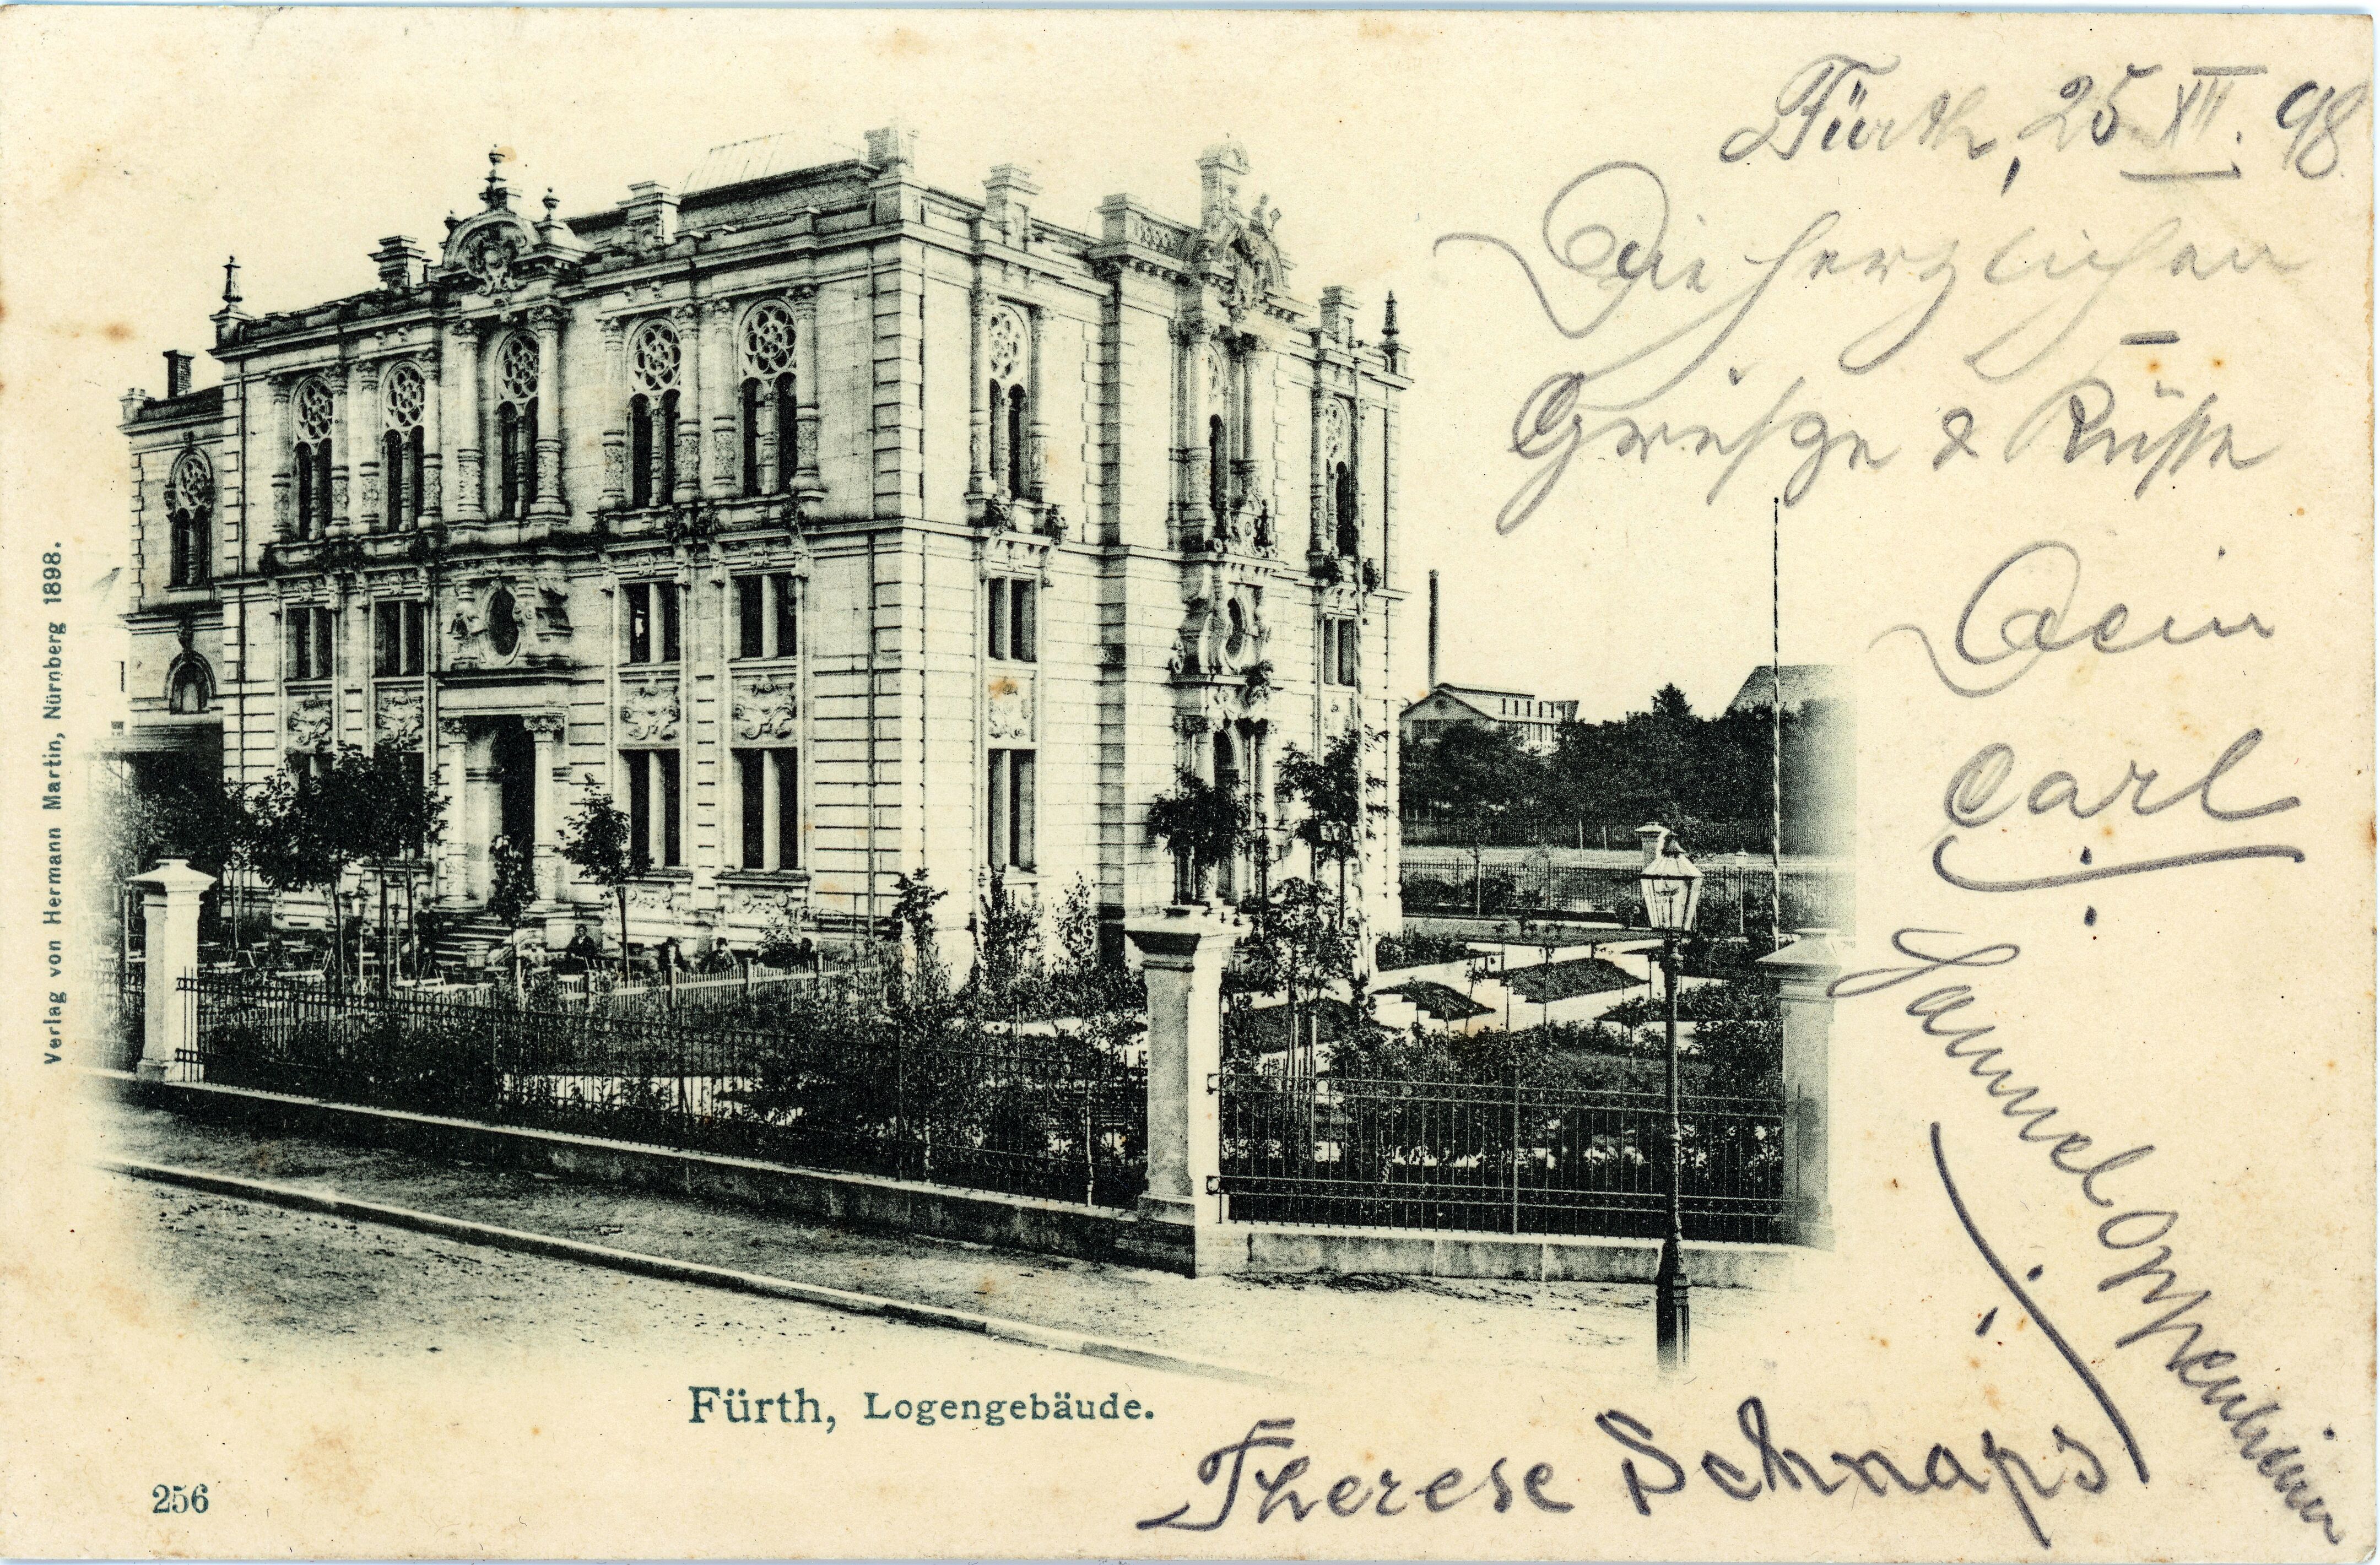 Fürth, 25. XII. 98.
Die herzlichen
Grüße & Küsse
Dein
Carl
Samuel Oppenheimer
Therese Schnaps
Fürth, Logengebäude.
256
Verlag von Hermann Martin, Nürnberg 1898.